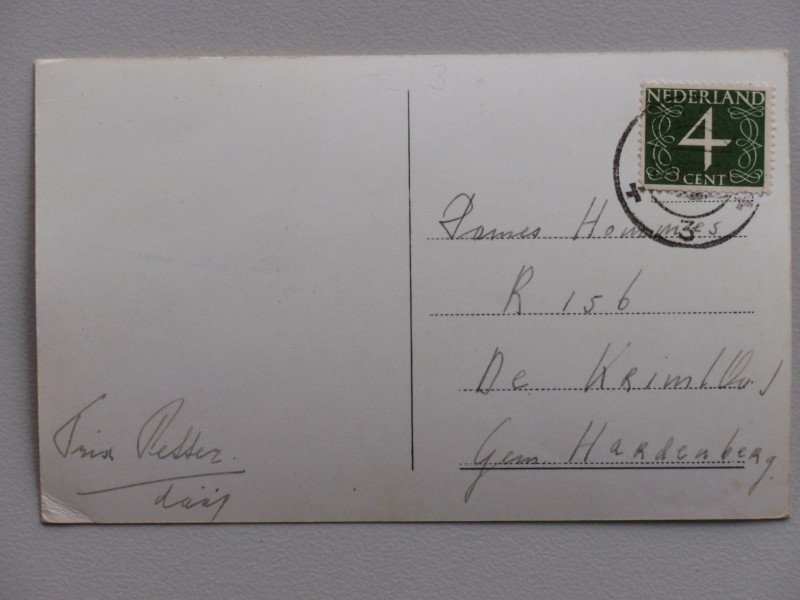 NEDERLAND
4
CENT
3
Dames Hommes
R 156
De Krim (Ov.)
Gem. Hardenberg.
Petter.